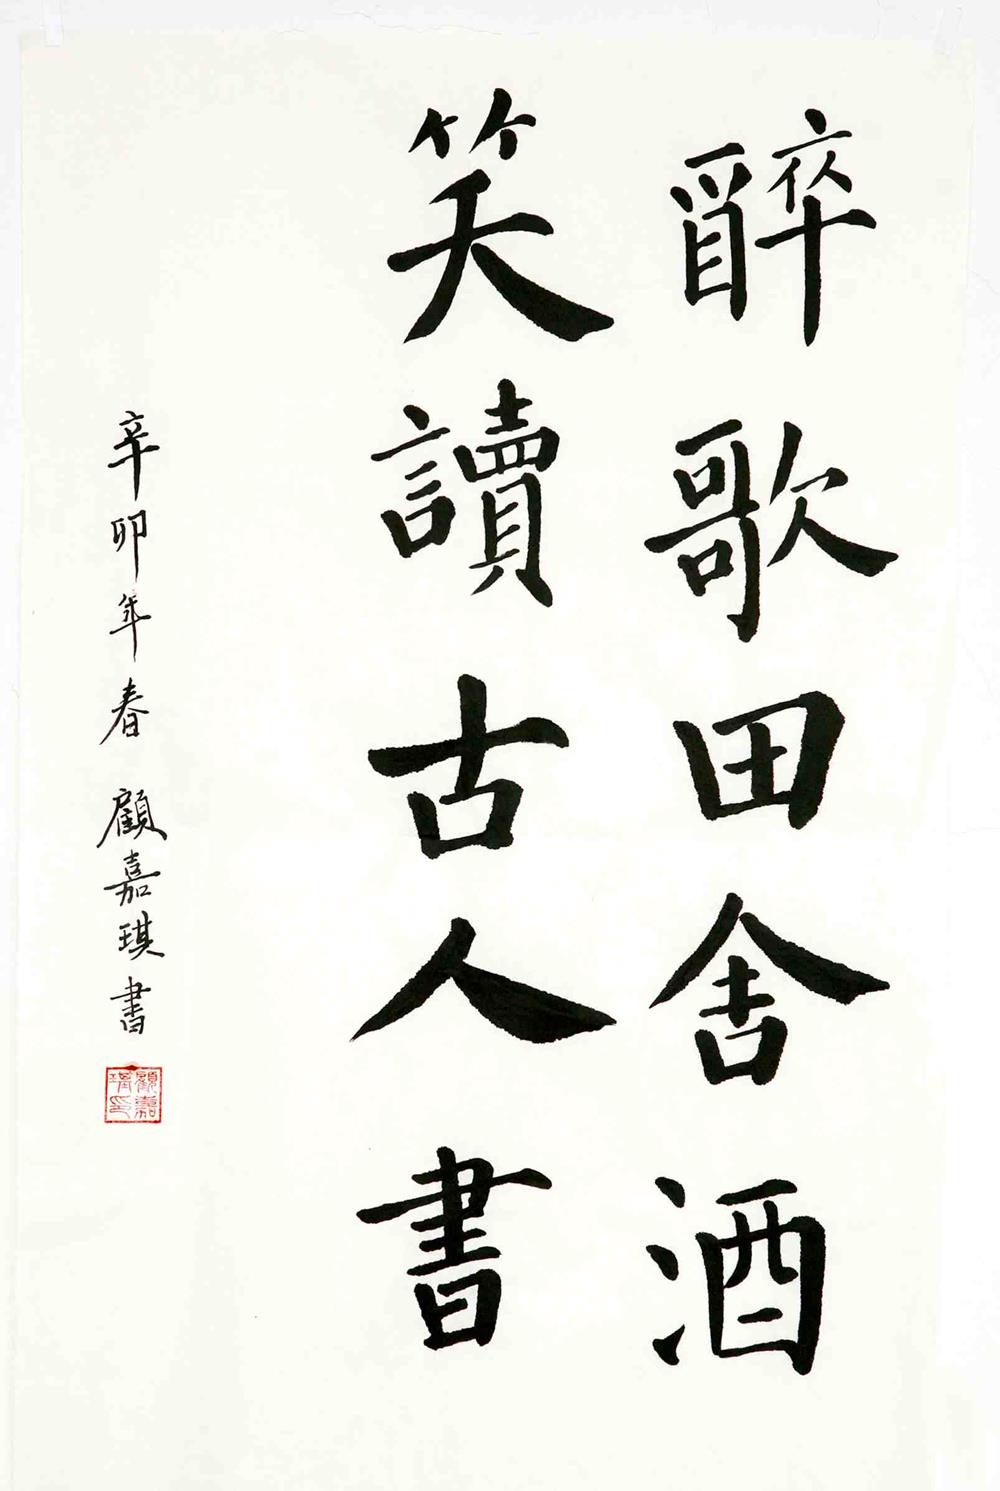 醉歌田舍酒
笑讀古人書
辛卯年春 顧嘉琪書
顧嘉
琪印